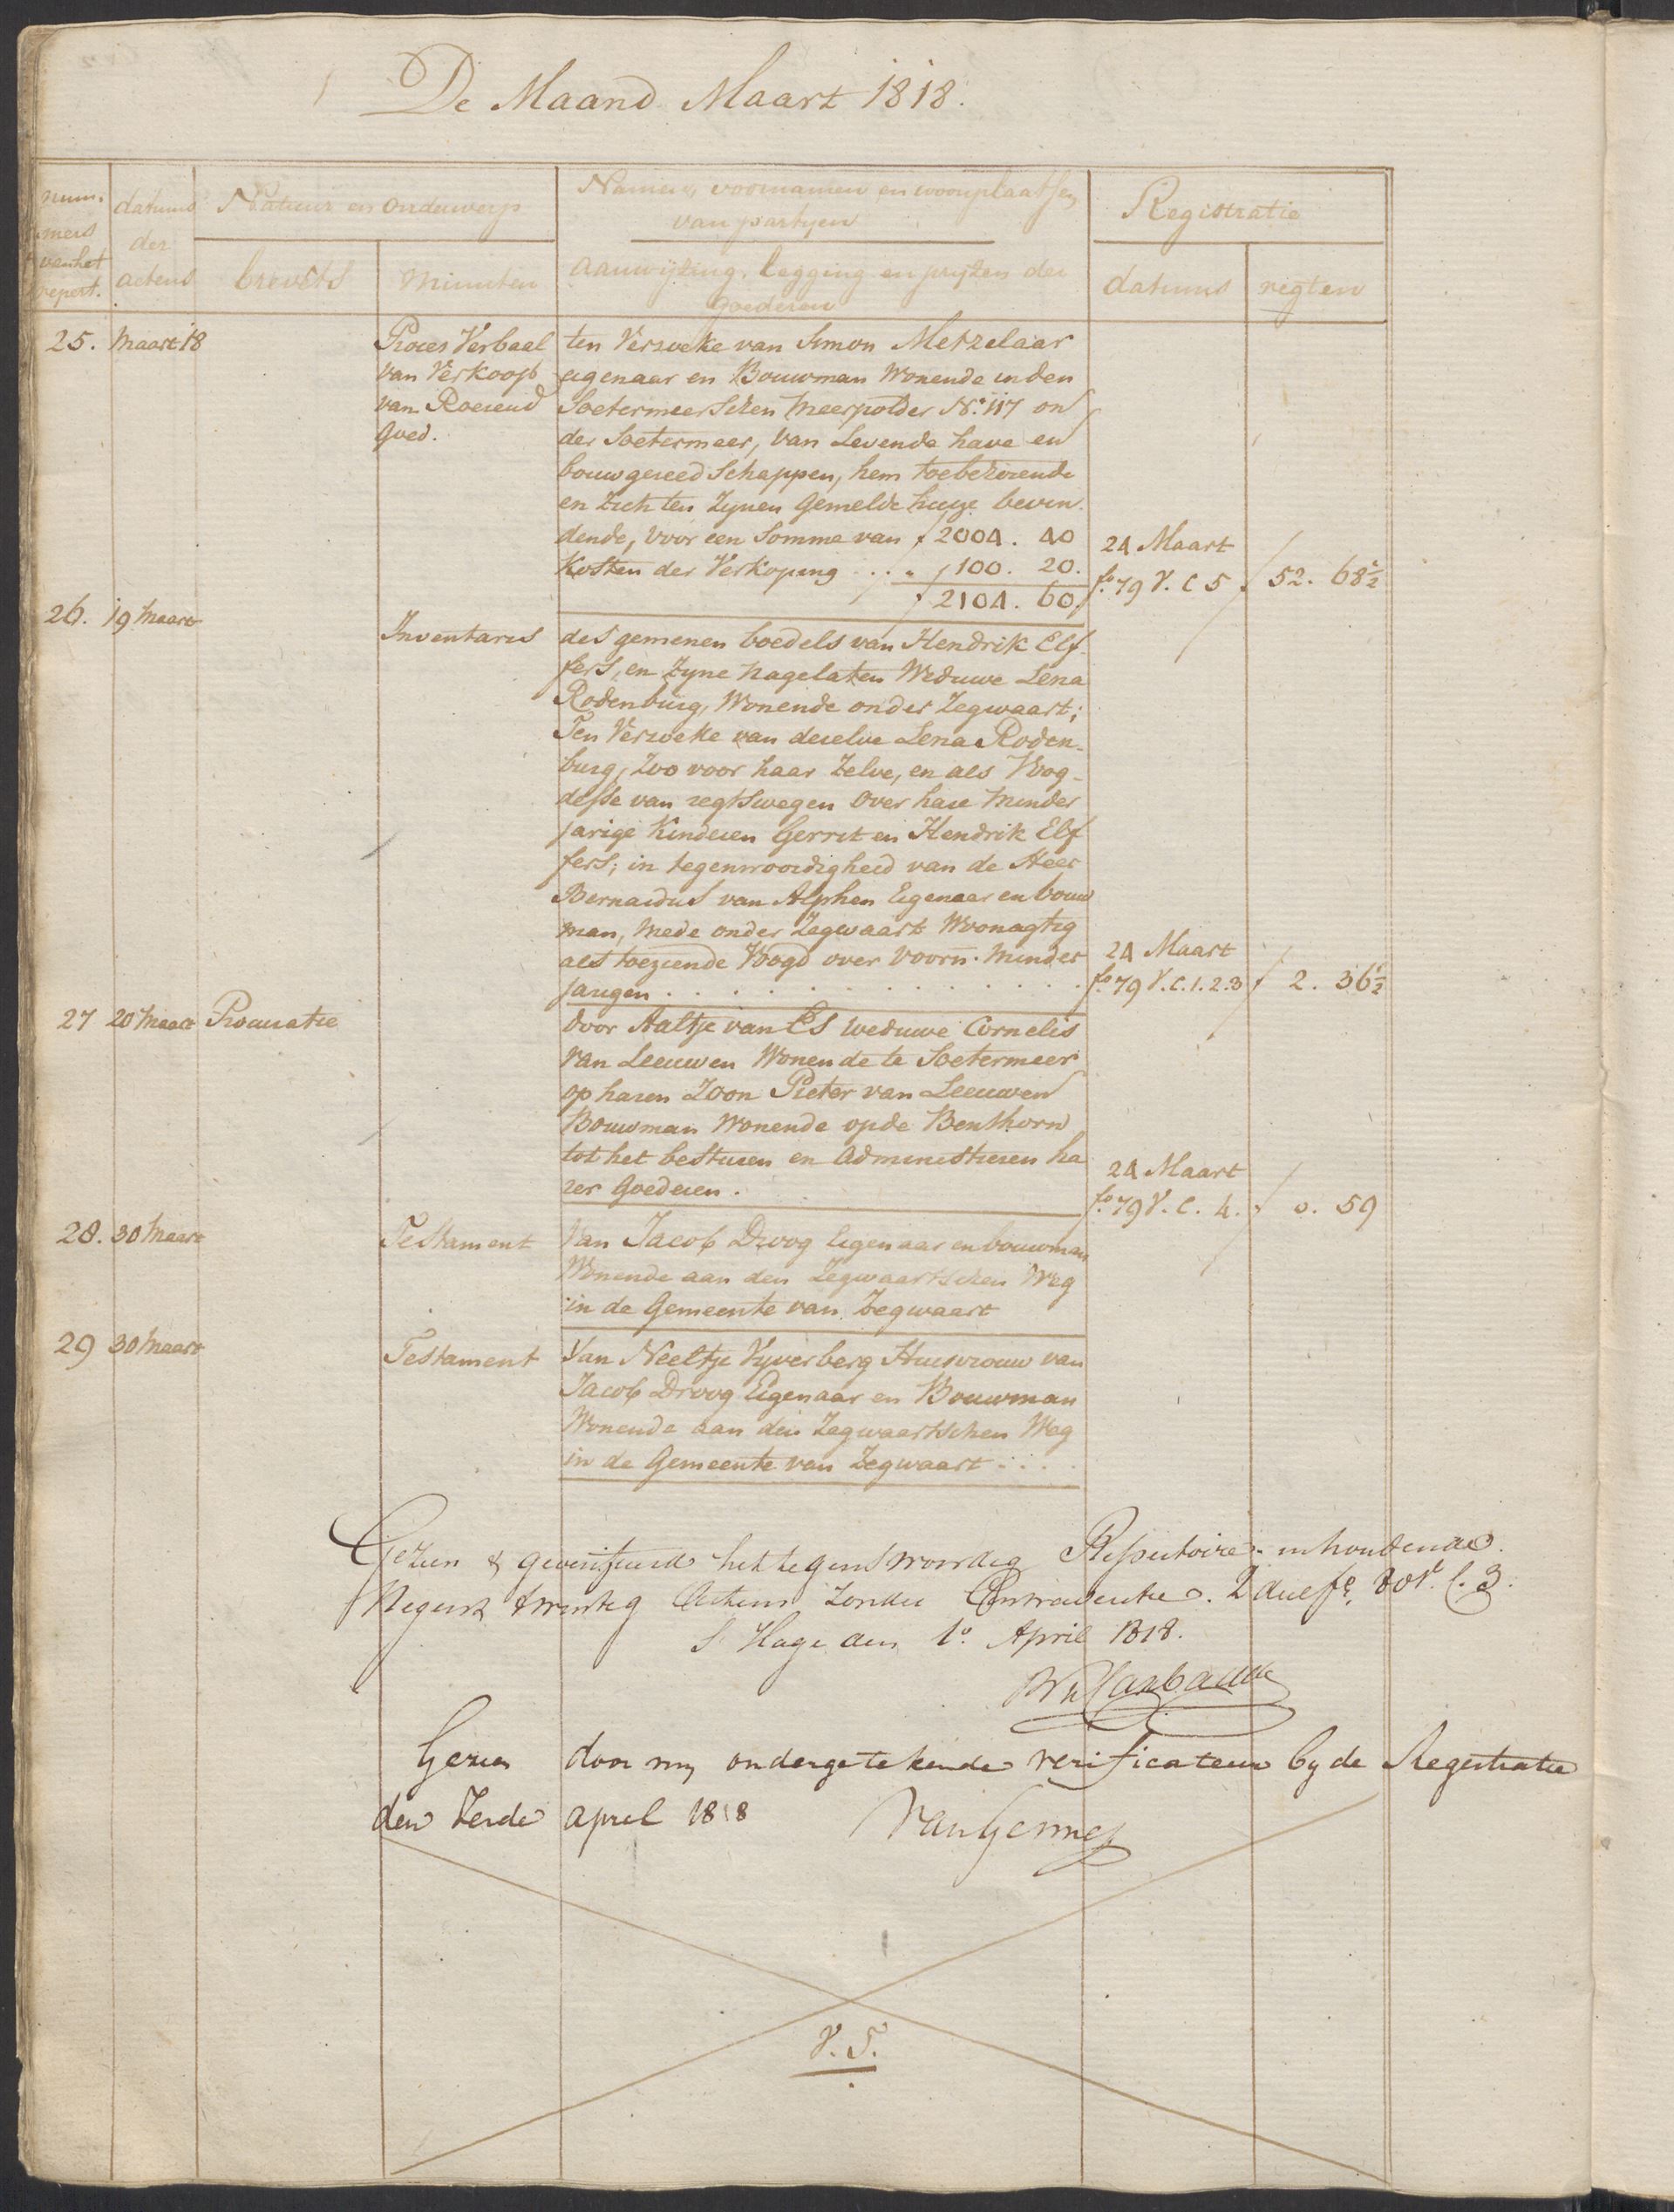 De Maand Maart 1818.
num.
mers
van het
repert.
datums
der
actens
Natuur en onderwerp
brevets
Minuten
Namen, voornamen en woonplaatsen
van partyen
aanwyzing, legging en pryzen der
goederen
Registratie
datums
regten
25. Maart 18
Proces Verbaal
van Verkoop
van Roerend
Goed.
ten Verzoeke van Simon Metzelaar
eigenaar en Bouwman Wonende in den
Soetermeerschen Meerpolder No. 117 on
der Soetermeer, Van Levende have en
bouwgereedschappen, hem toebehorende
en zich ten Zynen Gemelde huize bevin
dende, Voor een Somme van f 2004. 40
Kosten der Verkoping . . " 100. 20.
f 2104. 60.
24 Maart
fo. 79 V. C 5
f 52. 68½
26. 19 Maart
Inventaris
des gemenen boedels van Hendrik Elf-
fers, en Zyne nagelaten Weduwe Lena
Rodenburg, Wonende onder Zegwaart;
Ten Verzoeke van dezelve Lena Roden-
burg, Zoo voor haar Zelve, en als Voog-
desse van regtswegen Over hare minder
jarige Kinderen Gerrit en Hendrik Elf
fers; in tegenwoordigheid van de Heer
Bernardus van Alphen Eigenaar en bouw
man, Mede onder Zegwaart Woonagtig
als toeziende Voogd over Voorn. minder
jarigen . . . . . . . . . . . .
24 Maart
fo. 79 V. C. 1. 2. 3
f 2. 36½
27 20 Maart
Procuratie
door Aaltje van Es weduwe Cornelis
Van Leeuwen Wonende te Soetermeer
op haren Zoon Pieter van Leeuwen
Bouwman Wonende op de Benthorn
tot het besturen en Administreren ha
rer Goederen.
24 Maart
fo. 79 V. C. 4.
f 0. 59
28. 30 Maart
Testament
Van Jacob Droog Eigenaar en bouwman
Wonende aan den Zegwaartschen Weg
in de Gemeente van Zegwaart
29 30 Maart
Testament
Van Neeltje Vyverberg Huisvrouw van
Jacob Droog Eigenaar en Bouwman
Wonende aan den Zegwaartschen Weg
in de Gemeente van Zegwaart . . . .
Gezien & geverifieerd het tegenswoordig Repertoire inhoudende
Negen & twintig Actens zonder Contraventie. C. 3.
S Hage den 1o. April 1818.
Gezien door my ondergetekende verificateur by de Registratie
den derde april 1818
Van Gennep
V. T.